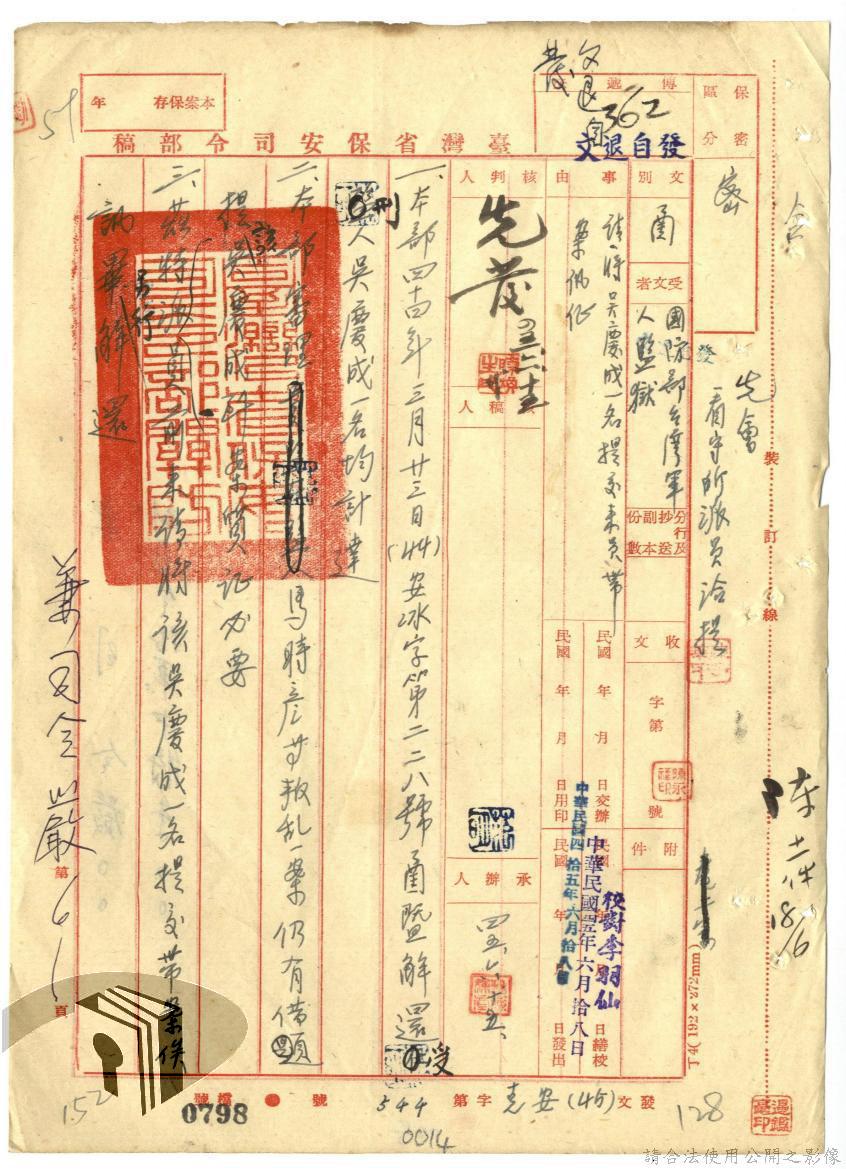 臺灣省保安司令部稿
本案保存 年
傳遞
362
發自退文
保密區分
密
文別
函
受文者
國防部台灣軍人監獄
事由
請將吳慶成一名提交來員帶案訊証
分行及抄送副本份數
核判人
先發
稿人
承辦人
四五、六、十五、
收文 字第 號
附件
民國 年 月 日交辦
民國 年 月 日用印
民國 年 月 日繕校
民國 年 月 日發出
中華民國四拾五年六月拾八日
中華民國四五年六月拾八日
校對李羽仙
先會
看守所派員洽提
裝訂線
一、本部四十四年三月廿三日(44)安冰字第二二八號函暨解還
人吳慶成一名均計達
二、本部審理 馬時彥等叛乱一案仍有借題
提吳慶成到案質証必要
三、茲特派員前來請將該吳慶成一名提交帶案俟
訊畢另行解還
兼司令 嚴
第 頁
發文(45)安 字第 544 號
檔號
0798
0014
152
128
51
T4(192×272mm)
請合法使用公開之影像